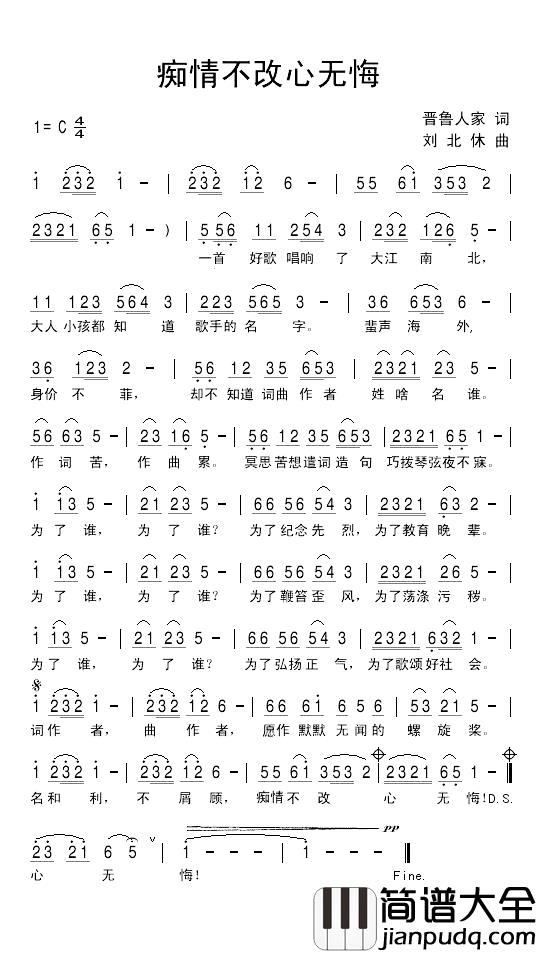 痴情不改心无悔
1=C 4/4
晋鲁人家 词
刘 北 休 曲
1 232 1 - | 232 12 6 - | 55 61 353 2 |
2321 65 1 - ) | 5 56 11 254 3 | 232 126 5 - |
一首 好歌 唱响 了 大江 南 北,
11 123 564 3 | 223 565 3 - | 36 653 6 - |
大人 小孩都 知 道 歌手的 名 字。 蜚声 海 外,
36 123 2 - | 55 12 35 653 | 2321 21 5 - |
身价 不 菲, 却不 知道 词曲 作者 姓 啥 名 谁。
56 63 5 - | 23 16 5 - | 56 12 35 653 | 2321 65 1 - |
作 词 苦, 作 曲 累。 冥思 苦想 遣词 造 句 巧拨琴弦夜不 寐。
1 13 5 - | 21 23 5 - | 66 56 54 3 | 2321 63 2 - |
为 了 谁, 为 了 谁? 为了 纪念 先 烈, 为了教育 晚 辈。
1 13 5 - | 21 23 5 - | 66 56 54 3 | 2321 26 5 - |
为 了 谁, 为 了 谁? 为了 鞭笞 歪 风, 为了荡涤 污 秽。
1 13 5 - | 21 23 5 - | 66 56 54 3 | 2321 632 1 - |
为 了 谁, 为 了 谁? 为了 弘扬 正 气, 为了歌颂 好社 会。
1 232 1 - | 232 12 6 - | 66 61 656 5 | 53 21 5 - |
词作 者, 曲 作 者, 愿作 默默 无闻 的 螺 旋 桨。
1 232 1 - | 232 12 6 - | 55 61 353 2 | 2321 65 1 - ‖
名和 利, 不 屑 顾, 痴情 不 改 心 无 悔!D.S.
pp
23 21 6 5 ∨ | 1 - - - | 1 - - - ‖
心 无 悔! Fine.
简谱大全
jianpudq.com